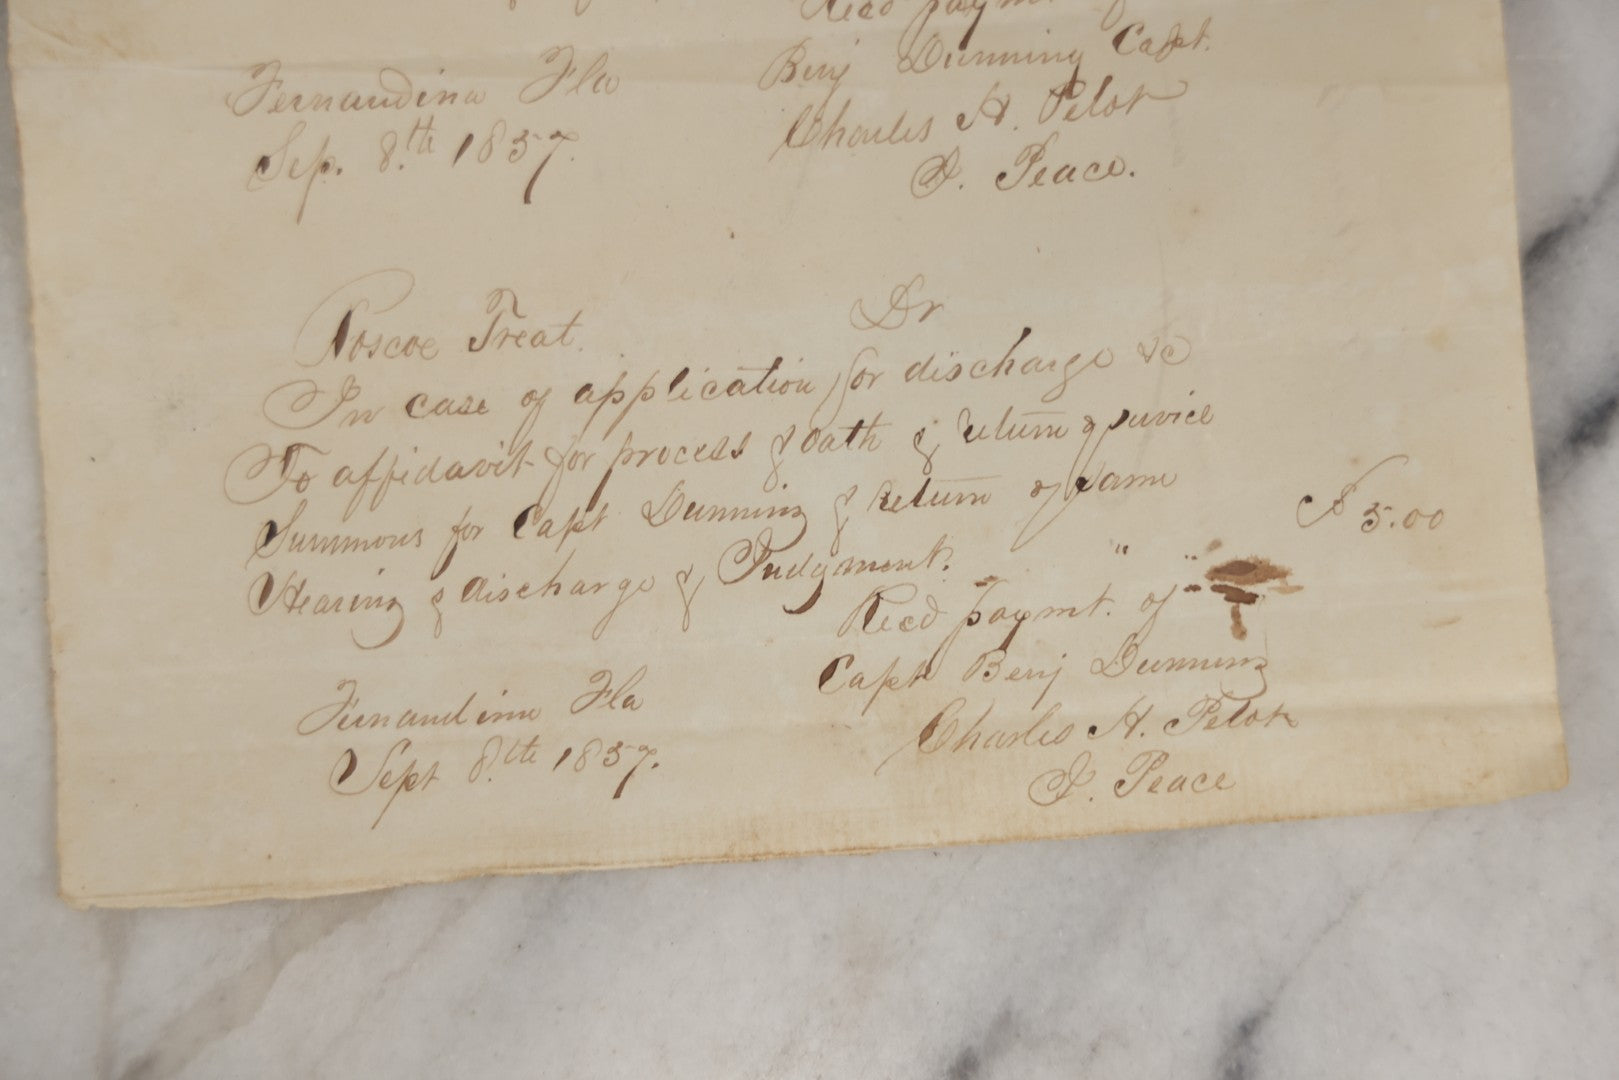 Recd paymt of
Benj Dunning Capt.
Fernandina Fla
Charles H. Pelot
Sep. 8.th 1857.
J. Peace.
Roscoe Treat. Dr
In case of application for discharge &c
To affidavit for process & oath & return of service
Summons for Capt Dunning & return of same $5.00
Hearing & discharge & Judgment. " "
Recd paymt. of
Capt Benj Dunning
Fernandina Fla
Charles H. Pelot
Sept 8.th 1857.
J. Peace